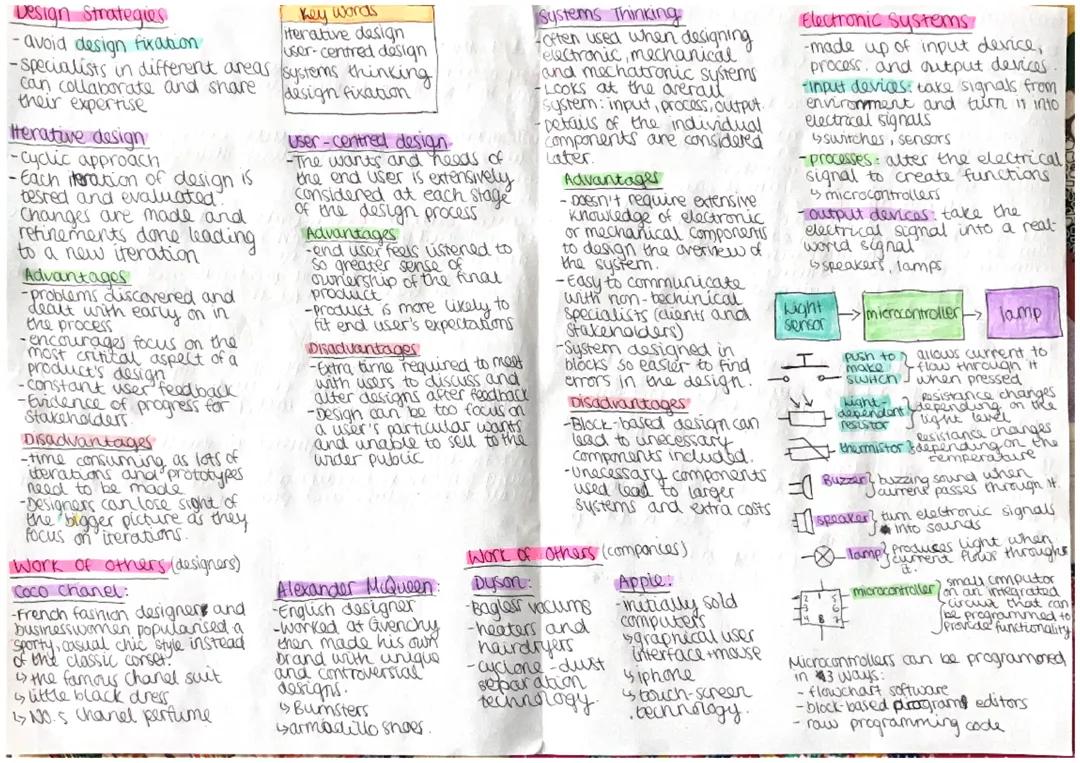 Design Strategies
- avoid design fixation
- specialists in different areas
can collaborate and share
their expertise
Iterative design
- cyclic approach
- Each iteration of design is
tested and evaluated.
Changes are made and
refinements done leading
to a new iteration
Advantages
- problems discovered and
dealt with early on in
the process
- encourages focus on the
most critical aspect of a
product's design
- constant user feedback
- Evidence of progress for
stakeholders.
Disadvantages
- time consuming as lots of
iterations and prototypes
need to be made
- Designers can lose sight of
the bigger picture as they
focus on iterations.
Key words
iterative design
user-centred design
systems thinking
design fixation
user-centred design
- The wants and needs of
the end user is extensively
considered at each stage
of the design process
Advantages
- end user feels listened to
so greater sense of
ownership of the final
product
- product is more likely to
fit end user's expectations
Disadvantages
- Extra time required to meet
with users to discuss and
alter designs after feedback
- Design can be too focus on
a user's particular wants
and unable to sell to the
wider public
Work of Others (designers)
Coco Chanel:
- French fashion designer and
businesswomen popularised a
sporty, casual chic style instead
of the classic corset.
↳ the famous chanel suit
↳ little black dress
↳ NO.5 chanel perfume
Alexander McQueen:
- English designer
- worked at Givenchy
then made his own
brand with unique
and controversial
designs.
↳ Bumsters
↳ armadillo shoes.
Work of Others (companies)
Dyson:
- Bagless vacums
- heaters and
hairdryers
- cyclone - dust
separation
technology.
Apple:
- initially sold
computers
↳ graphical user
interface + mouse
↳ iphone
↳ touch-screen
technology.
Systems Thinking
- often used when designing
electronic, mechanical
and mechatronic systems
- Looks at the overall
system: input, process, output.
- Details of the individual
components are considered
later.
Advantages
- Doesn't require extensive
knowledge of electronic
or mechanical components
to design the overview of
the system.
- Easy to communicate
with non-techinical
specialists (clients and
stakeholders)
- System designed in
blocks so easier to find
errors in the design.
Disadvantages
- Block-based design can
lead to unecessary
components included.
- unecessary components
used lead to larger
systems and extra costs
Electronic Systems
- made up of input device,
process and output devices.
- input devices: take signals from
environment and turn it into
electrical signals
↳ switches, sensors
- processes: alter the electrical
signal to create functions
↳ microcontrollers
- output devices: take the
electrical signal into a real-
world signal
↳ speakers, lamps
light sensor → microcontroller → lamp
push to make switch } allows current to flow through it when pressed
light-dependent resistor } resistance changes depending on the light level
thermistor } resistance changes depending on the temperature
Buzzer } buzzing sound when current passes through it.
speaker } turn electronic signals into sounds
lamp } produces light when current flows through it.
microcontroller } small computor on an integrated circuit that can be programmed to provide functionality
Microcontrollers can be programmed
in 3 ways:
- flowchart software
- block-based program editors
- raw programming code